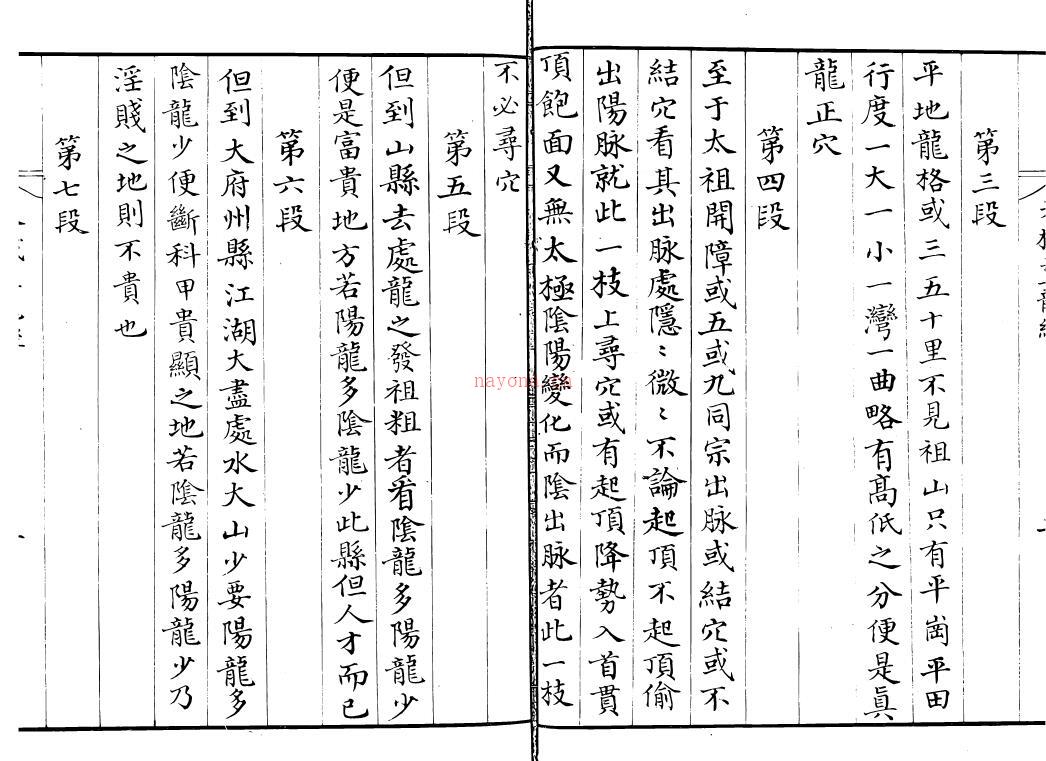 第三段
平地龍格或三五十里不見祖山只有平崗平田
行度一大一小一灣一曲略有高低之分便是眞
龍正穴
第四段
至于太祖開障或五或九同宗出脉或結穴或不
結穴看其出脉處隱〻微〻不論起頂不起頂偷
出陽脉就此一枝上尋穴或有起頂降勢入首貫
頂飽面又無太極陰陽變化而陰出脉者此一枝
不必尋穴
第五段
但到山縣去處龍之發祖粗者看陰龍多陽龍少
便是富貴地方若陽龍多陰龍少此縣但人才而已
第六段
但到大府州縣江湖大盡處水大山少要陽龍多
陰龍少便斷科甲貴顯之地若陰龍多陽龍少乃
淫賤之地則不貴也
第七段